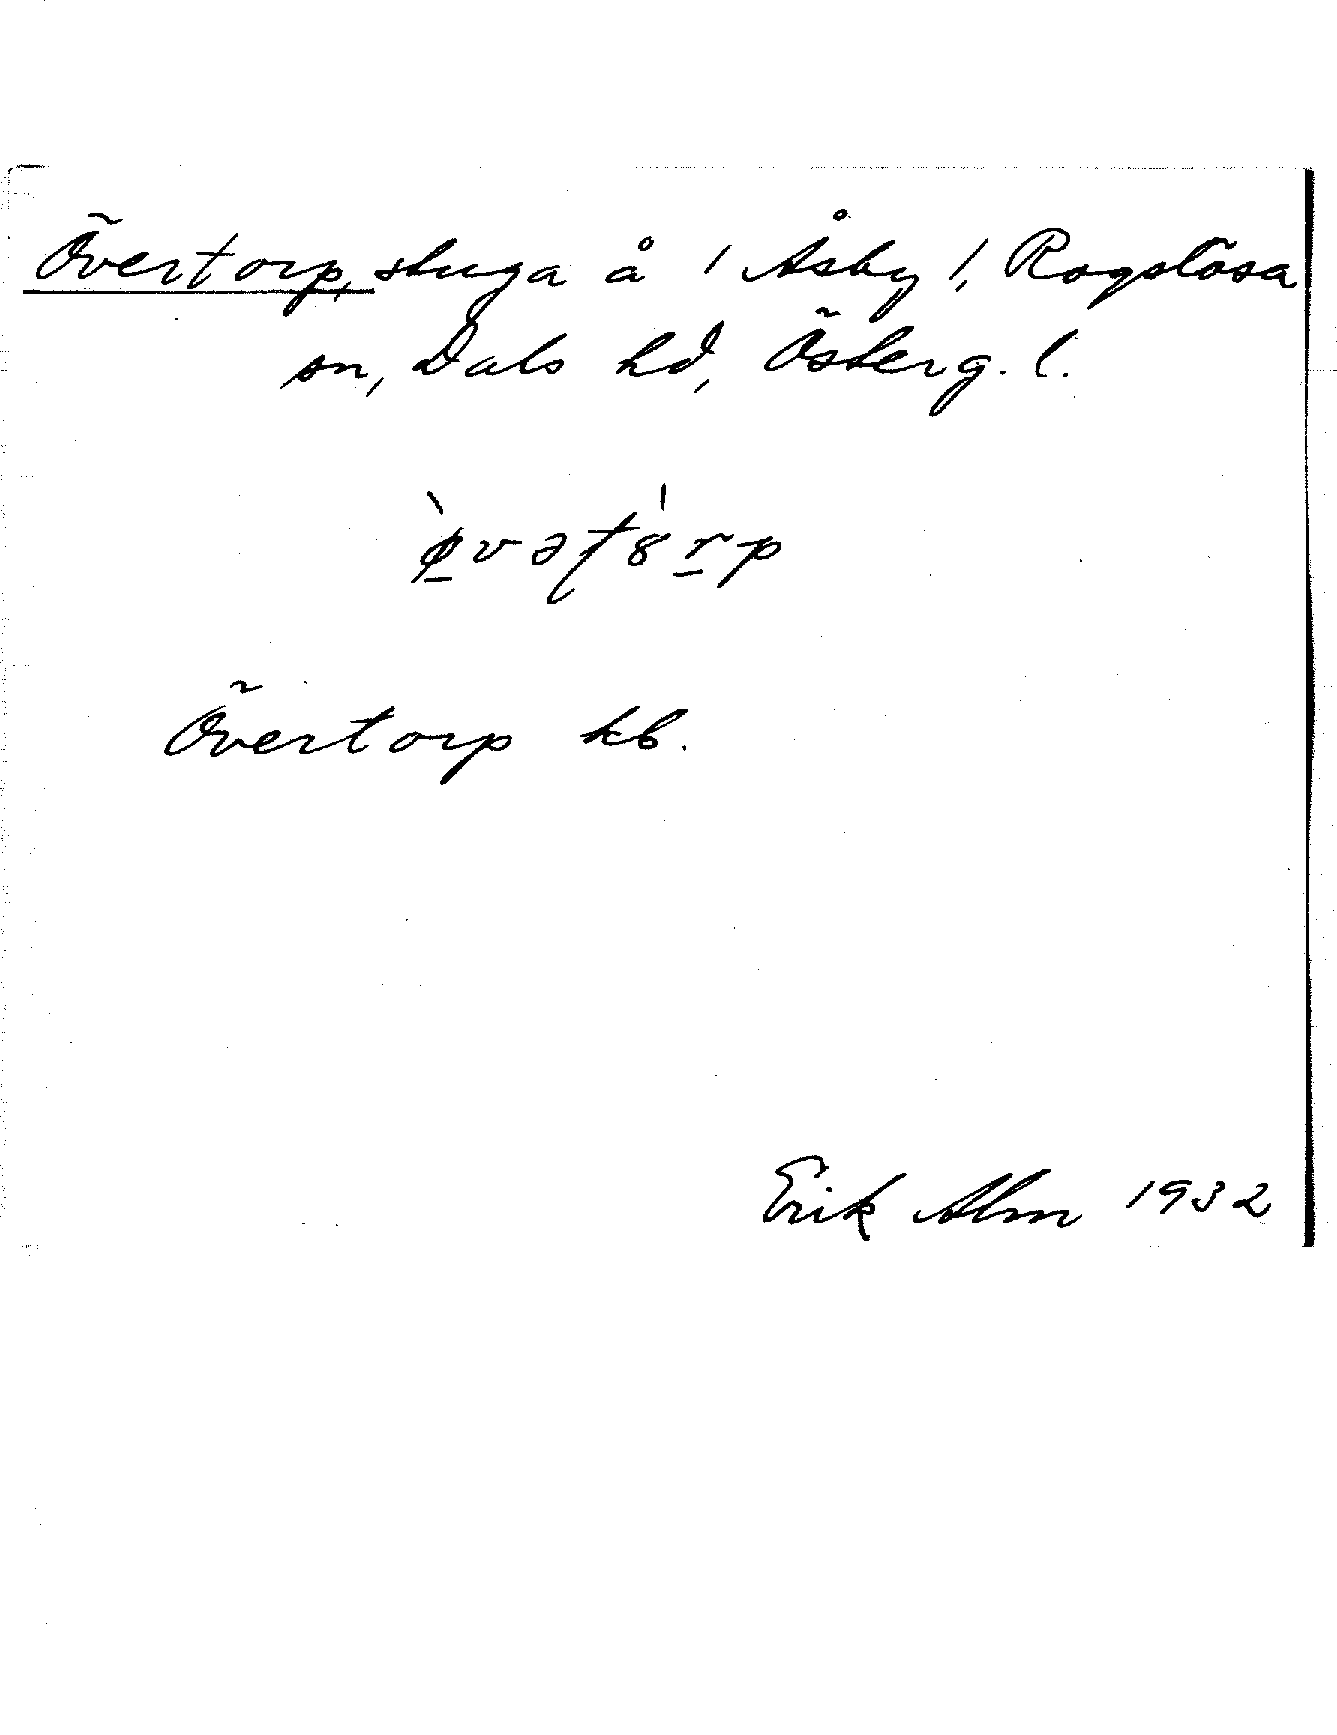 Övertorp, stuga å / Åsby /, Rogslösa
sn, Dals hd, Österg. l.
ø̠̀vəƭ8́r̠p
Övertorp kb.
Erik Alm 1932